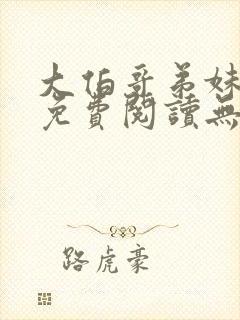 大伯哥弟妹
免費閱讀無
路虎豪